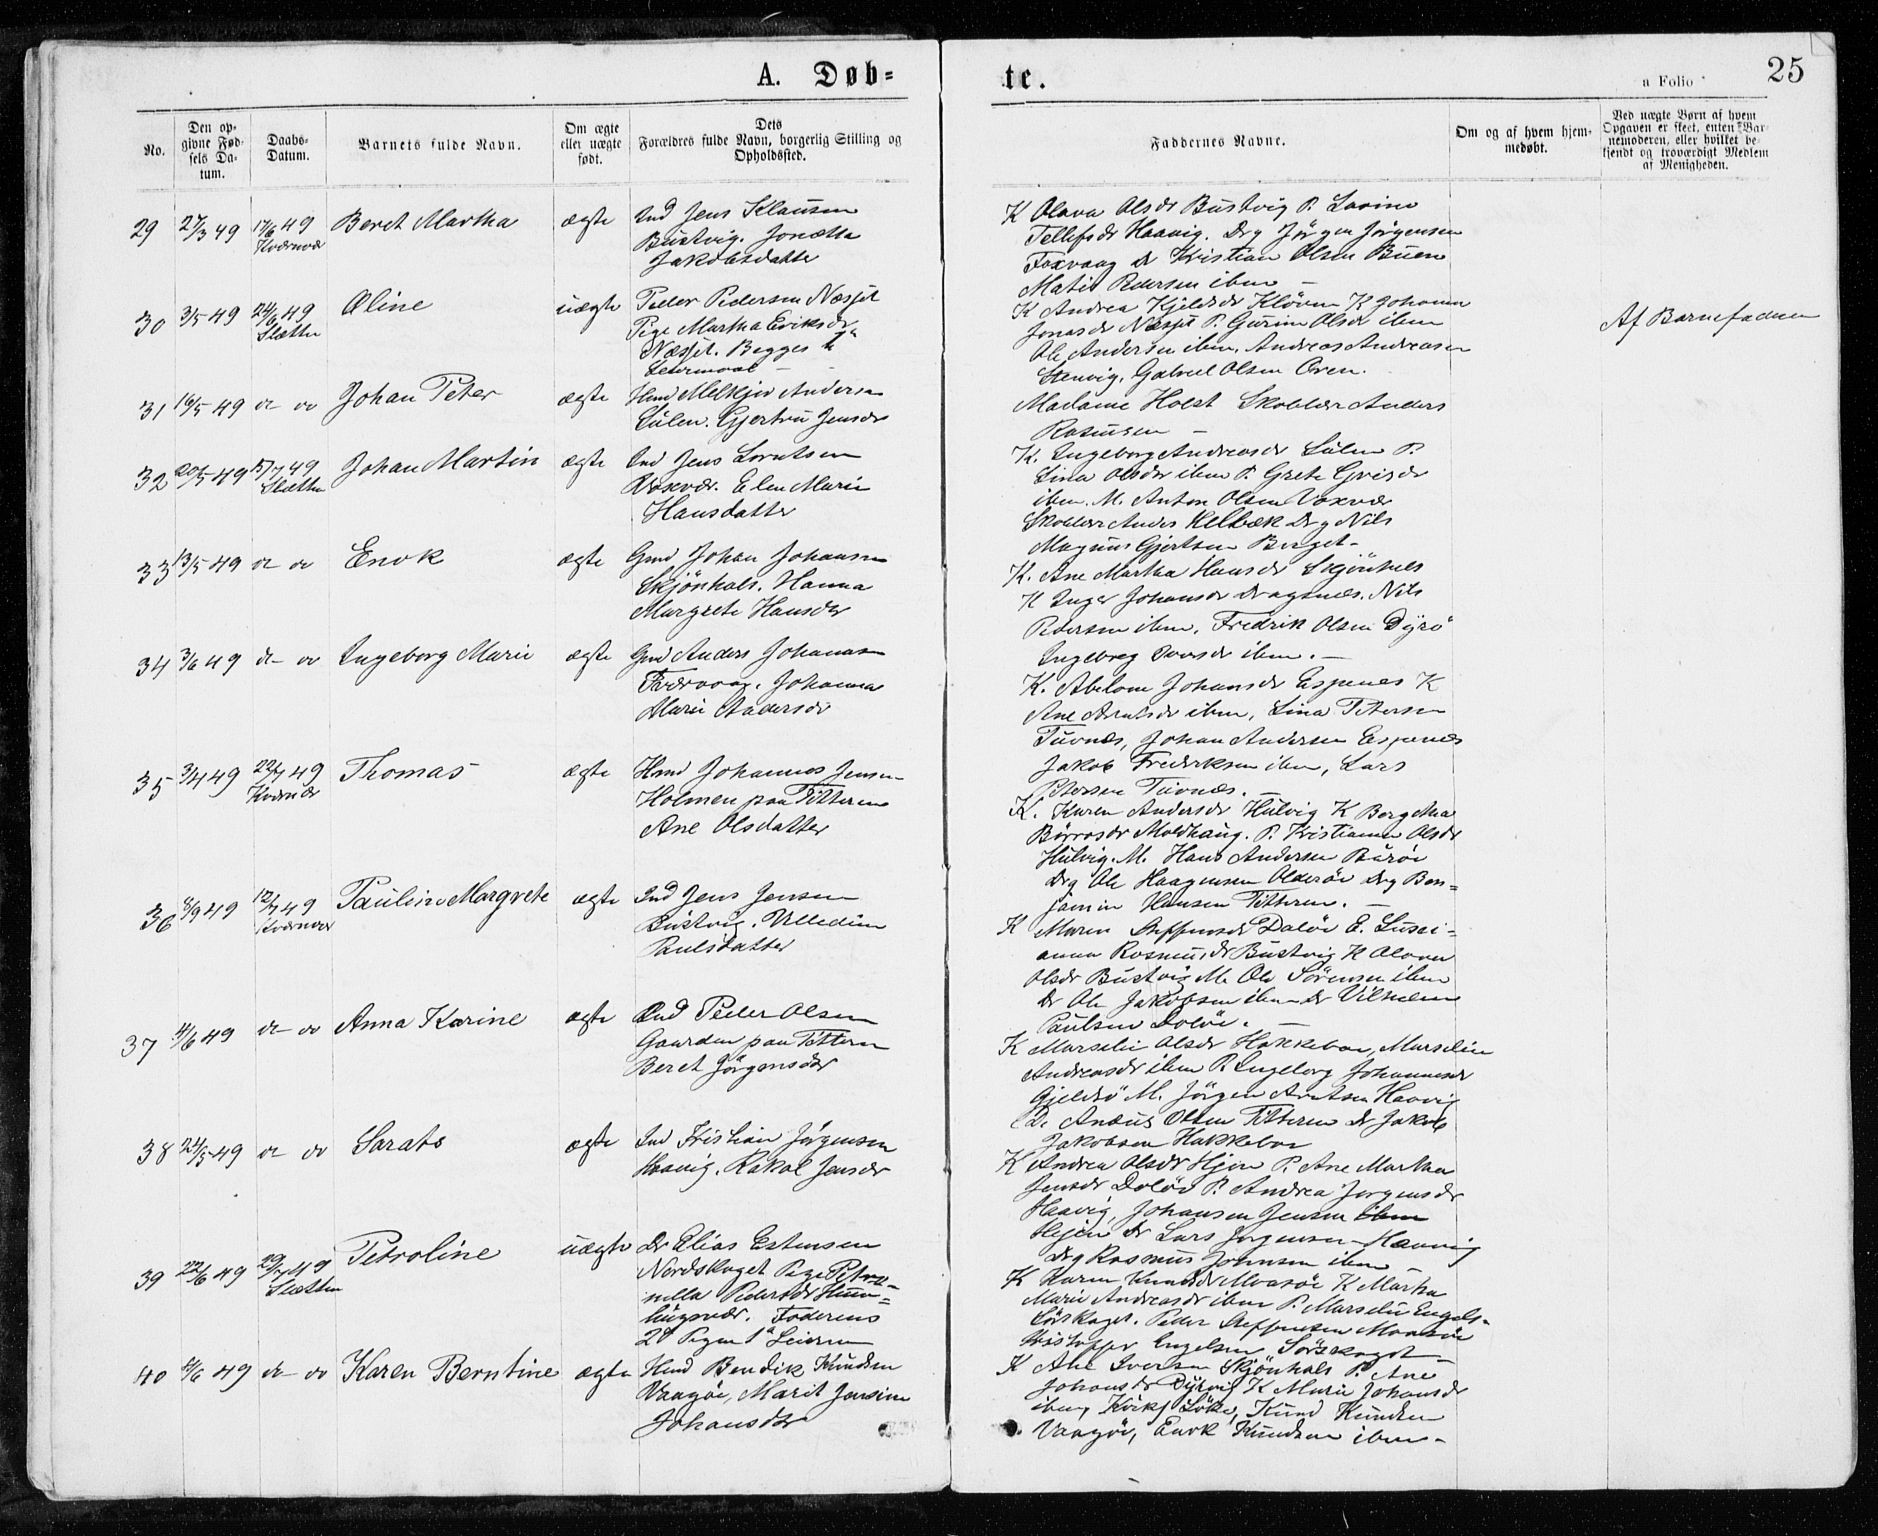 A. Døb=
te.
a Folio
25
No.
Den op=
givne Fød=
sels Da=
tum.
Daabs=
Datum.
Barnets fulde Navn.
Om ægte
eller uægte
født.
Dets
Forældres fulde Navn, borgerlig Stilling og
Opholdssted.
Faddernes Navne.
Om og af hvem hjem=
medøbt.
Ved uægte Børn af hvem
Opgaven er skeet, enten Bar=
nemoderen, eller hvilket be=
kjendt og troværdigt Medlem
af Menigheden.
29
27/3 49
17/6 49
Kvernvær
Beret Martha
ægte
Ind Jens Klausen
Bustvig. Jonetta
Jakobsdatter
K Olava Olsdr Bustvig P. Lavine
Tellefsdr Haavig. Drg Jörgen Jörgensen
Foxvaag Dr Kristian Olsen Buen
Matis Pedersen ibm –
30
3/5 49
24/6 49
Sletten
Oline
uægte
Peder Pedersen Næsset
Pige Martha Eriksdr
Næsset. Begges 1ste
Leiermaal –
K Andrea Kjeldsdr Klöven K Johanna
Jonasdr Næsset P. Gurine Olsdr ibm
Ole Andersen ibm. Andreas Andreasen
Stenvig, Gabriel Olsen Oven.
Af Barnefaderen
31
16/5 49
do do
Johan Peter
ægte
Hmd Melkjer Andersen
Sulen. Gjertru Jensdr
Madame Holst Skolelær Anders
Rasmusen –
32
20/5 49
15/7 49
Sletten
Johan Martin
ægte
Ind Jens Lorntsen
Voxvær. Elen Marie
Hansdatter
K. Ingeborg Andreasdr Sulen P.
Lina Olsdr ibm P. Grete
ibm. M. Anton Olsen Voxvær
Skolelær Anders Helbæk Drg Nils
Magnus Gjertsen Berget –
33
13/5 49
do do
Enok
ægte
Gmd Johan Johansen
Skjönhals. Hanna
Margrete Hansdtr
K. Ane Martha Hansdr Skjönhals
K Inger Johansdr Dragsnæs. Nils
Pedersen ibm. Fredrik Olsen Dyrö
Ingebreg Iversdr ibm. –
34
3/6 49
do do
Ingeborg Marie
ægte
Gmd Anders Johansen
Færvaag. Johanna
Marie Andersdr
K. Abelone Johansdr Espenes K
Ane Arntsdr ibm, Lina Petersen
Tuvnæs, Johan Andersen Espenæs
Jakob Fredriksen ibm, Lars
Petersen Tuvnæs. –
35
3/4 49
22/7 49
Kvernvær
Thomas
ægte
Hmd Johannes Jensen
Holmen paa Titteren
Ane Olsdatter
K. Karen Andersdr Hulvig K Bergitha
Börrosdr Moldhaug. P. Kristianna Olsdr
Hulvig. M. Hans Andersen Buröi
Drg Ole Haagensen Olderöi Drg Ben=
jamin Hansen Titteren. –
36
12/7 49
Kvernvær
Pauline Margrete
ægte
Ind Jens Jensen
Bustvig. Villedine
Paulsdatter
K Maren Steffensdr Dolöi E. Lussi=
anna Rasmusdr Bustvig K Olava
Olsdr Bustvig M. Ole Sörensen ibm
Dr Ole Jakobsen ibm Dr Vilhelm
Paulsen Dolöi. –
37
4/6 49
do do
Anna Karine
ægte
Ind Peder Olsen
Gaarden paa Titteren
Beret Jörgensdtr
K Marselie Olsdr Hakkeboe, Marseline
Andreasdr ibm P. Ingeborg Johannesdr
Gjeldsö M. Jörgen Arntsen Haavig
D. Andreas Olsen Titteren Dr Jakob
Jakobsen Hakkeboe
38
24/5 49
do do
Sarats
ægte
Ind Kristian Jörgensen
Haavig. Rakel Jensdr
K Andrea Olsdr Hjien P. Ane Martha
Jensdr Dolöi P. Andrea Jörgensdr
Haavig, Johansen Jensen ibm
Hejen Dr Lars Jörgensen Haavig
Drg Rasmus Johnsen ibm –
39
22/6 49
29/7 49
Sletten
Petroline
uægte
Dr Elias Estensen
Nordskaget Pige Petro=
nella Pedersdr
Faderens
2de Pigen 1ste Leierm
K Karen Knudsdr Moasöe K Martha
Marie Andreasdr ibm P. Marselie Engels=
Sörskaget. Peder Steffensen Moasöe
Kristoffer Engelsen Sörskaget –
40
21/6 49
do do
Karen Berntine
ægte
Hmd Bendik Knudsen
Vaagöe, Marit Jensine
Johansdtr
K Ane Iversen Skjönhals P. Ane
Johansdr Dyrvig K Marie Johansdr
ibm, Knud Knudsen
Vaagöe, Enok Knudsen ibm –